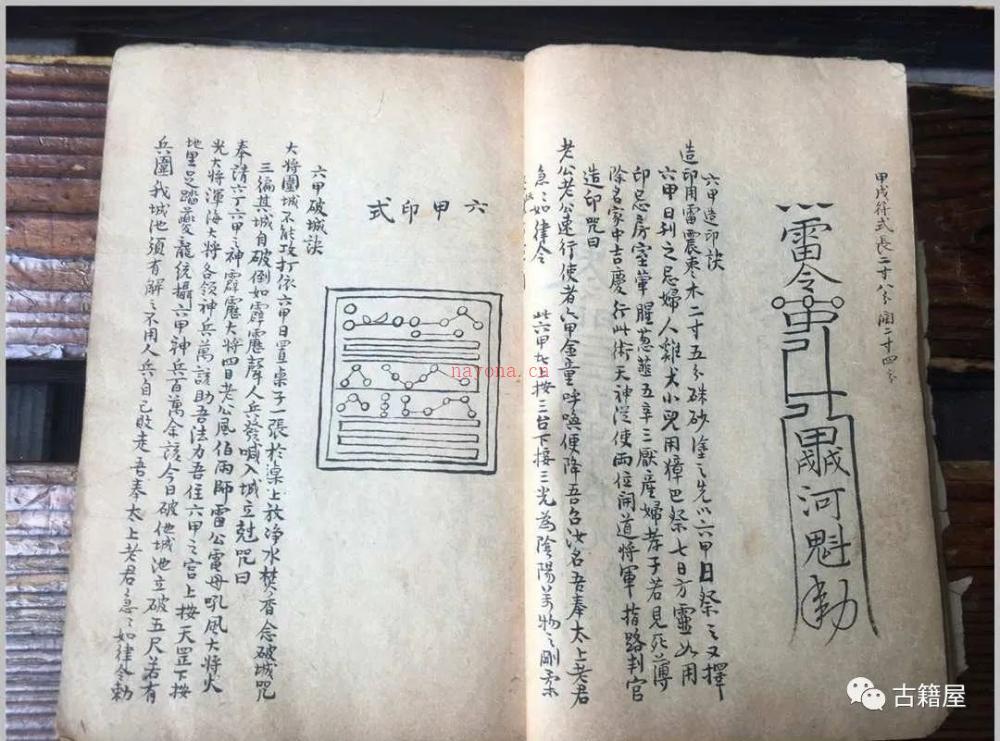 甲戌符式長二寸八分闊二寸四分
雷令
河魁
六甲造印訣
造印用雷震枣木二寸五分硃砂塗之先以六甲日祭之又擇
六甲日刋之忌婦人雞犬小兒用獐巴祭七日方靈如用
印忌房室葷腥葱薤五辛三厭産婦孝子若見死薄
除名家中吉慶行此術天神從使兩位開道將軍指路判官
造印咒曰
老公老公速行使者六甲金童呼喚便降吾召汝名吾奉太上老君
急之如律令
此六甲 按三台下接三光為陰陽萬物之剛柔
六甲印式
六甲破城訣
大將圍城不能攻打依六甲日置桌子一張於桌上放净水焚香念破城咒
三編其城自破倒如霹靂聲人兵發喊入城立尅咒曰
奉請六丁六甲之神霹靂大將四目老公風伯雨師雷公電母吼風大將火
光大將渾海大將各領神兵萬該助吾法力吾住六甲之宫上按天罡下按
地里足踏夔龍統攝六甲神兵百萬余該今日破他城池立破五尺若有
兵圍我城池須有解之不用人兵自己敗走吾奉太上老君急之如律令勅
nayona.cn
古籍屋